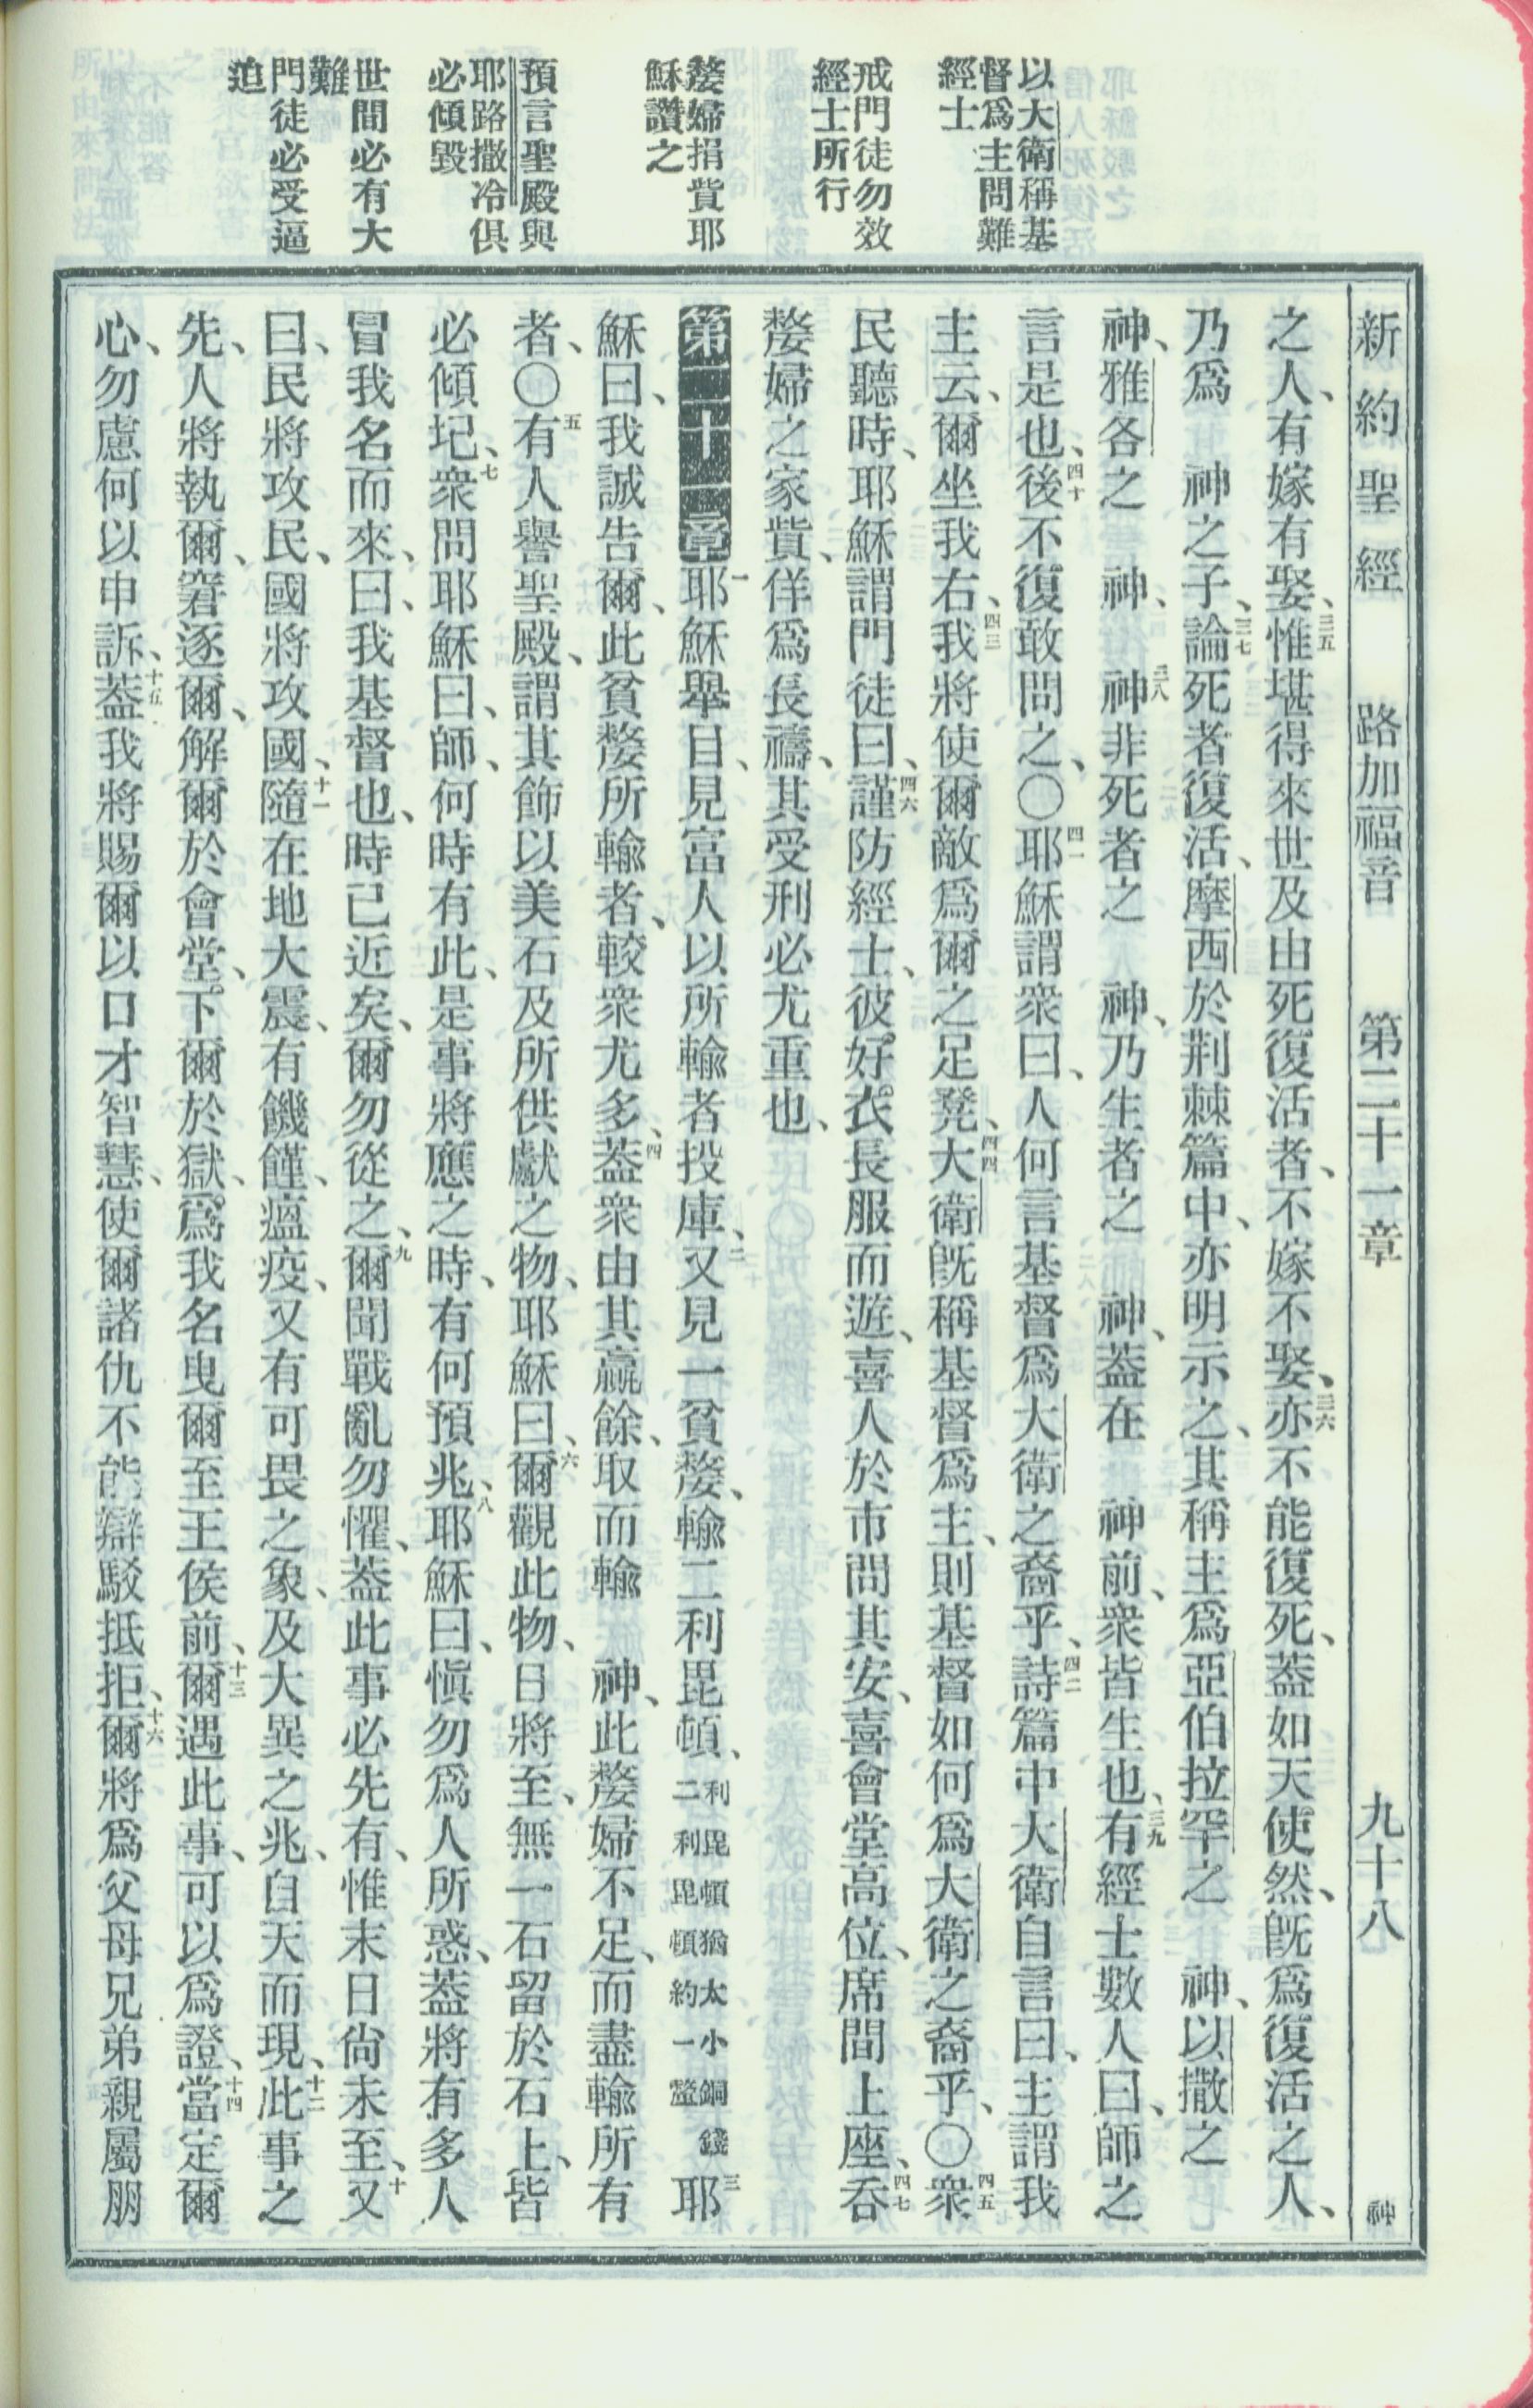 新約聖經 路加福音 第二十一章 九十八 神
以大衛稱基
督爲主問難
經士
戒門徒勿效
經士所行
嫠婦捐貲耶
穌讚之
預言聖殿與
耶路撒冷俱
必傾毀
世間必有大
難
門徒必受逼
迫
之人、有嫁有娶、三五惟堪得來世及由死復活者、不嫁不娶、三六亦不能復死、蓋如天使然、旣爲復活之人、
乃爲 神之子、三七論死者復活、摩西於荆棘篇中、亦明示之、其稱主爲亞伯拉罕之 神、以撒之
神、雅各之 神、三八神非死者之 神、乃生者之 神、蓋在 神前、衆皆生也、三九有經士數人曰、師之
言是也、四十後不復敢問之、〇四一耶穌謂衆曰、人何言基督爲大衛之裔乎、四二詩篇中大衛自言曰、主謂我
主云、爾坐我右、四三我將使爾敵爲爾之足凳、四四大衛旣稱基督爲主、則基督如何爲大衛之裔乎、〇四五衆
民聽時、耶穌謂門徒曰、四六謹防經士、彼好衣長服而遊、喜人於市問其安、喜會堂高位、席間上座、四七吞
嫠婦之家貲、佯爲長禱、其受刑必尤重也、
第二十一章 一耶穌舉目、見富人以所輸者投庫、二又見一貧嫠、輸二利毘頓、利毘頓猶太小銅錢二利毘頓約一釐三耶
穌曰、我誠告爾、此貧嫠所輸者、較衆尤多、四蓋衆由其贏餘、取而輸 神、此嫠婦不足、而盡輸所有
者、〇五有人譽聖殿、謂其飾以美石及所供獻之物、耶穌曰、六爾觀此物、日將至、無一石留於石上、皆
必傾圮、七衆問耶穌曰、師、何時有此、是事將應之時、有何預兆、八耶穌曰、愼勿爲人所惑、蓋將有多人
冒我名而來、曰、我基督也、時已近矣、爾勿從之、九爾聞戰亂勿懼、蓋此事必先有、惟末日尙未至、十又
曰、民將攻民、國將攻國、十一隨在地大震、有饑饉、瘟疫、又有可畏之象、及大異之兆、自天而現、十二此事之
先、人將執爾、窘逐爾、解爾於會堂、下爾於獄、爲我名曳爾至王侯前、十三爾遇此事、可以爲證、十四當定爾
心、勿慮何以申訴、十五蓋我將賜爾以口才智慧、使爾諸仇不能辯駁抵拒、十六爾將爲父母兄弟親屬朋